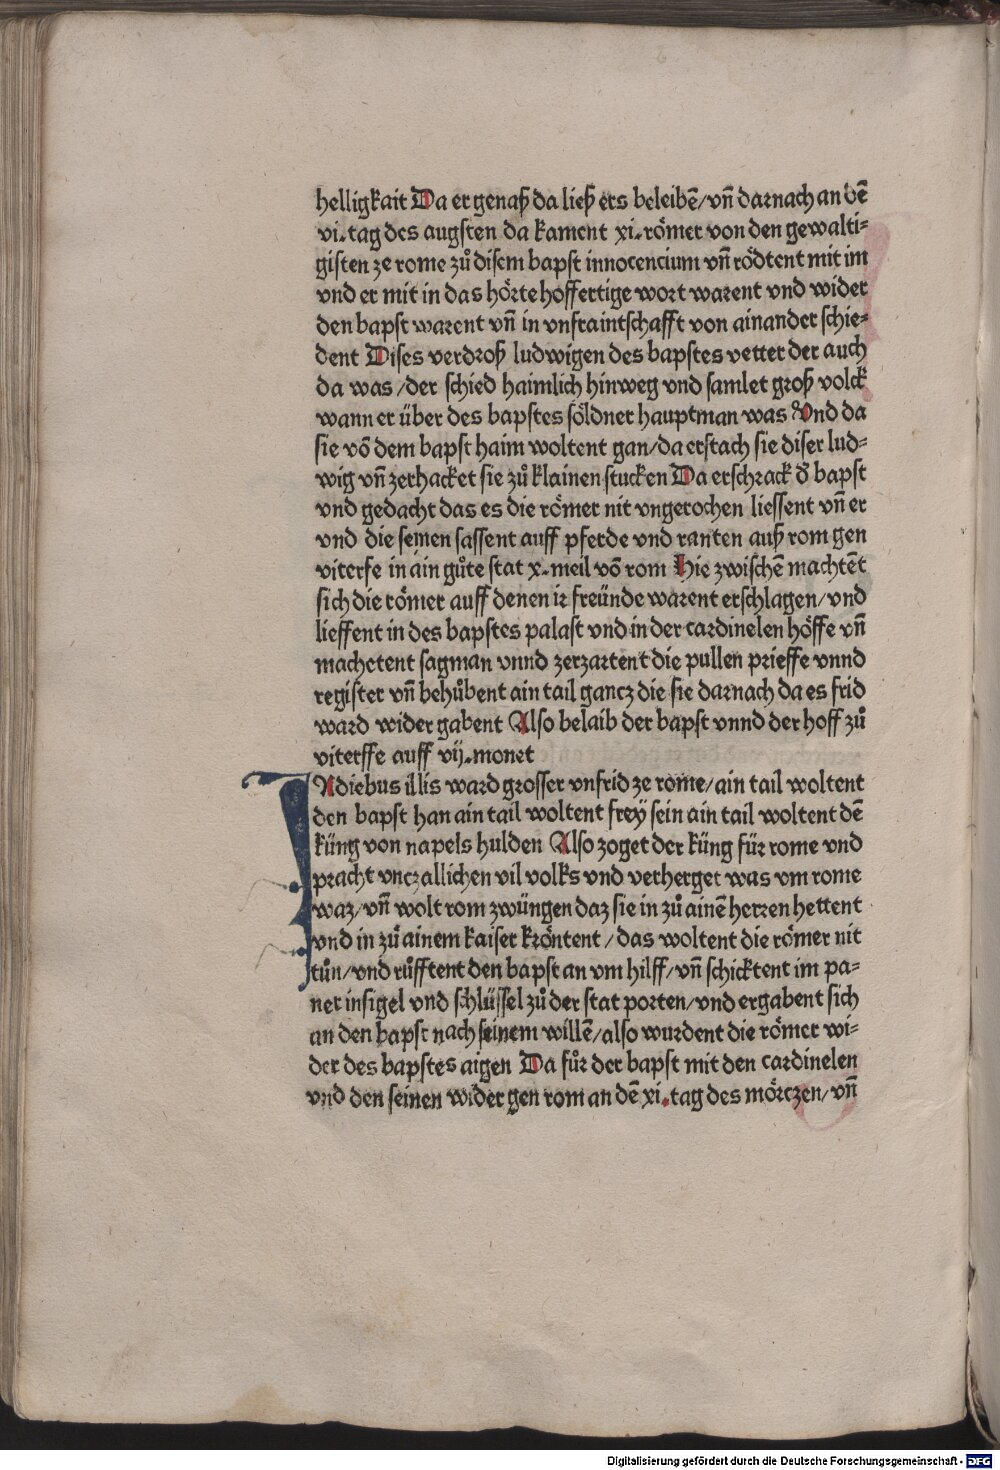 helligkait Da er genaß da ließ ers beleibē/vn̄ darnach an dē
vi.tag des augsten da kament xi.römer von den gewalti⸗
gisten ze rome zuͦ disem bapst innocencium vn̄ rödtent mit im
vnd er mit in das hörte hoffertige wort warent vnd wider
den bapst warent vn̄ in vnfraintschafft von ainander schie⸗
dent Dises verdroß ludwigen des bapstes vetter der auch
da was/der schied haimlich hinweg vnd samlet groß volck
wann er über des bapstes söldner hauptman was Vnd da
sie vō dem bapst haim woltent gan/da erstach sie diser lud⸗
wig vn̄ zerhacket sie zuͦ klainen stucken Da erschrack d' bapst
vnd gedacht das es die römer nit vngerochen liessent vn̄ er
vnd die seinen sassent auff pferde vnd ranten auß rom gen
viterfe in ain guͦte stat x.meil vō rom Hie zwischē machtēt
sich die römer auff denen ir freünde warent erschlagen/vnd
lieffent in des bapstes palast vnd in der cardinelen höffe vn̄
machetent sagman vnnd zerzartent die pullen prieffe vnnd
register vn̄ behuͦbent ain tail gancz die sie darnach da es frid
ward wider gabent Also belaib der bapst vnnd der hoff zuͦ
viterffe auff vij.monet
INdiebus illis ward grosser vnfrid ze rome/ain tail woltent
den bapst han ain tail woltent frey sein ain tail woltent dē
küng von napels hulden Also zoget der küng für rome vnd
pracht vnczallichen vil volks vnd verherget was vm rome
waz/vn̄ wolt rom zwüngen daz sie in zuͦ ainē herren hettent
vnd in zuͦ ainem kaiser kröntent/das woltent die römer nit
tuͦn/vnd ruͦfftent den bapst an vm hilff/vn̄ schicktent im pa⸗
ner insigel vnd schlüssel zuͦ der stat porten/vnd ergabent sich
an den bapst nach seinem willē/also wurdent die römer wi⸗
der des bapstes aigen Da fuͦr der bapst mit den cardinelen
vnd den seinen wider gen rom an dē xi.tag des mörczen/vn̄
Digitalisierung gefördert durch die Deutsche Forschungsgemeinschaft - DFG